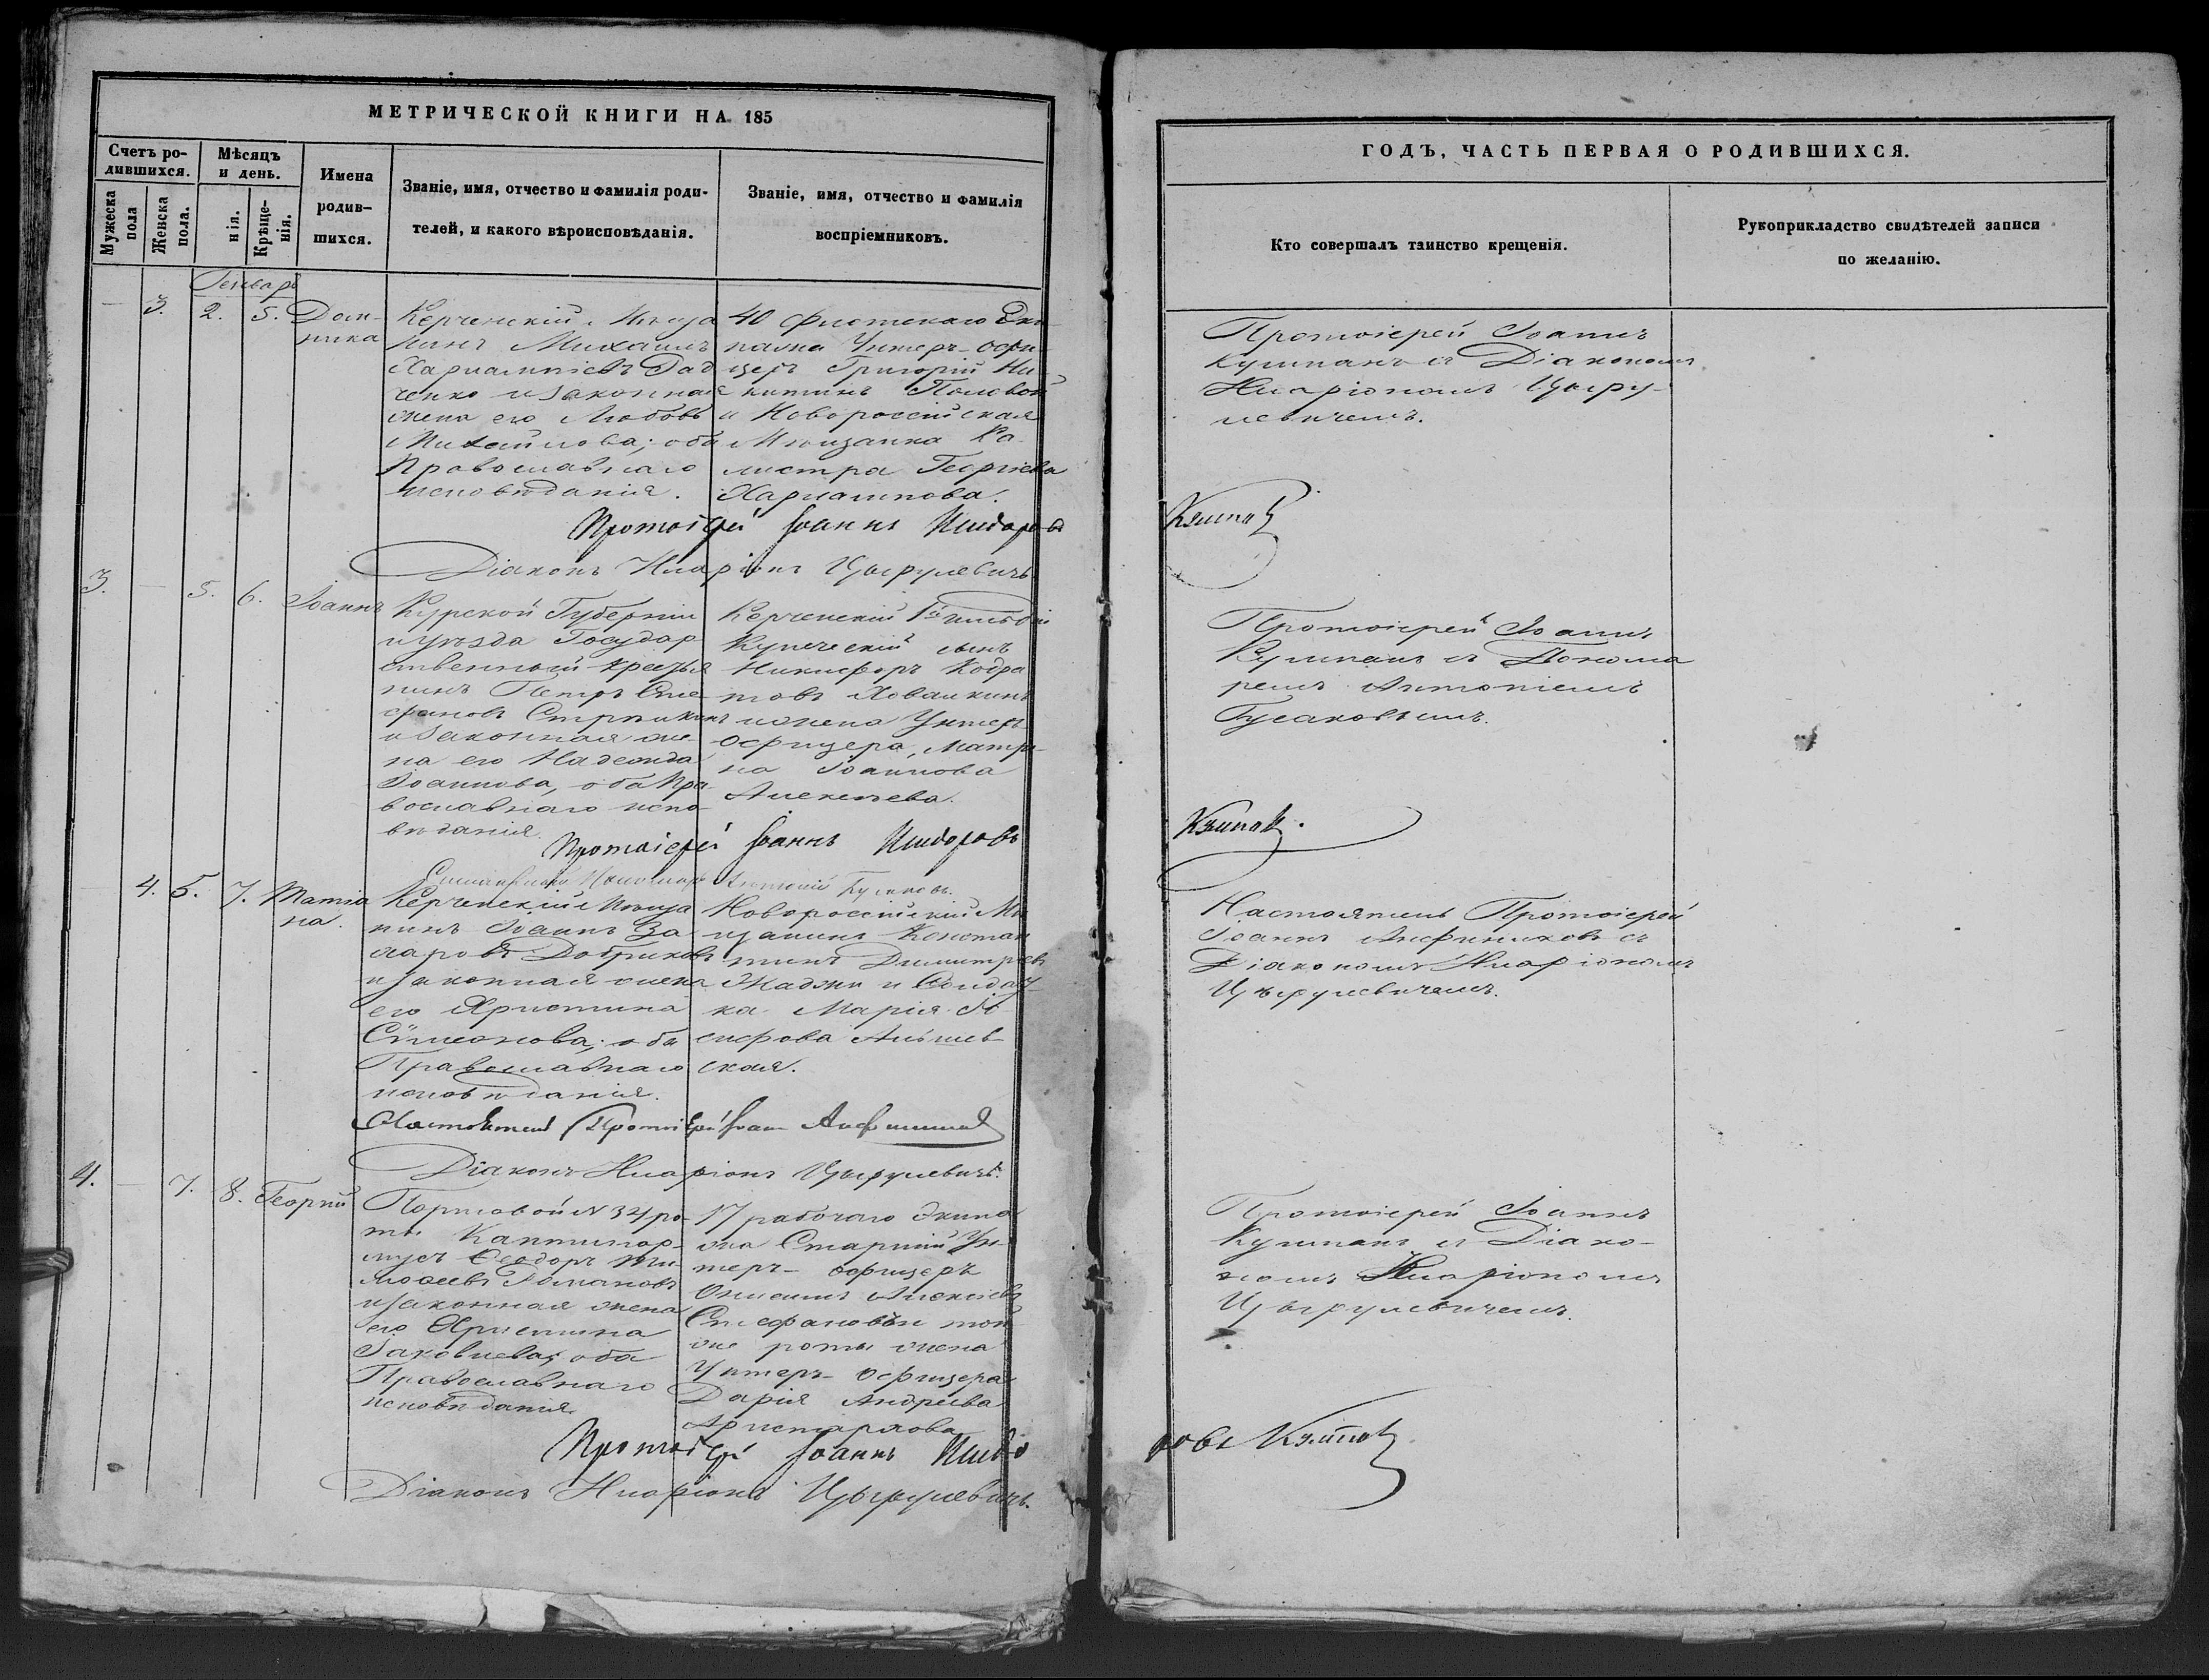 МЕТРИЧЕСКОЙ КНИГИ НА 185
Счетъ ро-
дившихся.
Мѣсяцъ
и день.
Мужеска
пола
Женска
пола.
нія.
Крѣще-
нія.
Имена
родив-
шихся.
Званіе, имя, отчество и фамилія роди-
телей, и какого вѣроисповѣданія.
Званіе, имя, отчество и фамилія
воспріемниковъ.
Генварь
3.
2.
5.
Дом-
ника
Керченскій Мѣща
нинъ Михаилъ
Харлампіевъ Рад
ченко и законная
жена его Любовь
Михайлова; оба
Православнаго
исповѣданія.
40 Флотскаго Эки-
пажа Унтеръ-Офи
церъ Григорій Ни-
китинъ Половой
и Новороссійская
Мѣщанка Ка-
листра Георгіева
Харлампова.
Протоіерей Іоаннъ Исидоровъ
Діаконъ Иларіонъ Цыгрулевичъ
3.
5.
6.
Іоаннъ
Курской Губерніи
и уѣзда Государ
ственный крестья
нинъ Петръ Сте
фановъ
и законная же-
на его Надежда
Іоаннова, оба Пра
вославнаго испо-
вѣданія.
Керченскій гильдіи
Купеческій сынъ
Никифоръ Кодра
товъ Ховалкинъ
и жена Унтеръ
Офицера, Матро-
на Іоаннова
Алексѣева.
Протоіерей Іоаннъ Исидоровъ
Пономарь Антоній Гусаковъ.
4.
5.
7.
Татіа
на.
Керченскій Мѣща
нинъ Іоаннъ За
харовъ Добриковъ
и законная жена
его Христина
Симеонова; оба
Православнаго
исповѣданія.
Новороссійскій Мѣ
щанинъ Констан
тинъ Димитріевъ
Жаджи и Солдат
ка Марія Іо
сифова
ская.
Настоятель Протоіерей Іоаннъ
Діаконъ Иларіонъ Цыгрулевичъ.
4.
7.
8.
Георгій
Портовой № 34 ро-
ты Каптенар-
мусъ Ѳеодоръ Ти-
моѳеевъ Романовъ
и законная жена
его Христина
Іаковлева; оба
Православнаго
исповѣданія.
17 рабочаго Экипа
жа Старшій Ун-
теръ-офицеръ
Онисимъ Алексіевъ
Стефановъ и той
же роты жена
Унтеръ-Офицера
Дарія Андреева
Аристархова
Протоіерей Іоаннъ Исидо
Діаконъ Иларіонъ Цыгрулевичъ.
ГОДЪ, ЧАСТЬ ПЕРВАЯ О РОДИВШИХСЯ.
Кто совершалъ таинство крещенія.
Рукоприкладство свидѣтелей записи
по желанію.
Протоіерей Іоаннъ
Кумпанъ съ Діакономъ
Иларіономъ Цыгру-
левичемъ.
Протоіерей Іоаннъ
Кумпанъ съ Понома
ремъ Антоніемъ
Гусаковымъ.
Настоятель Протоіерей
Іоаннъ съ
Діакономъ Иларіономъ
Цыгрулевичемъ.
Протоіерей Іоаннъ
Кумпанъ съ Діако-
номъ Иларіономъ
Цыгрулевичемъ.
ровъ